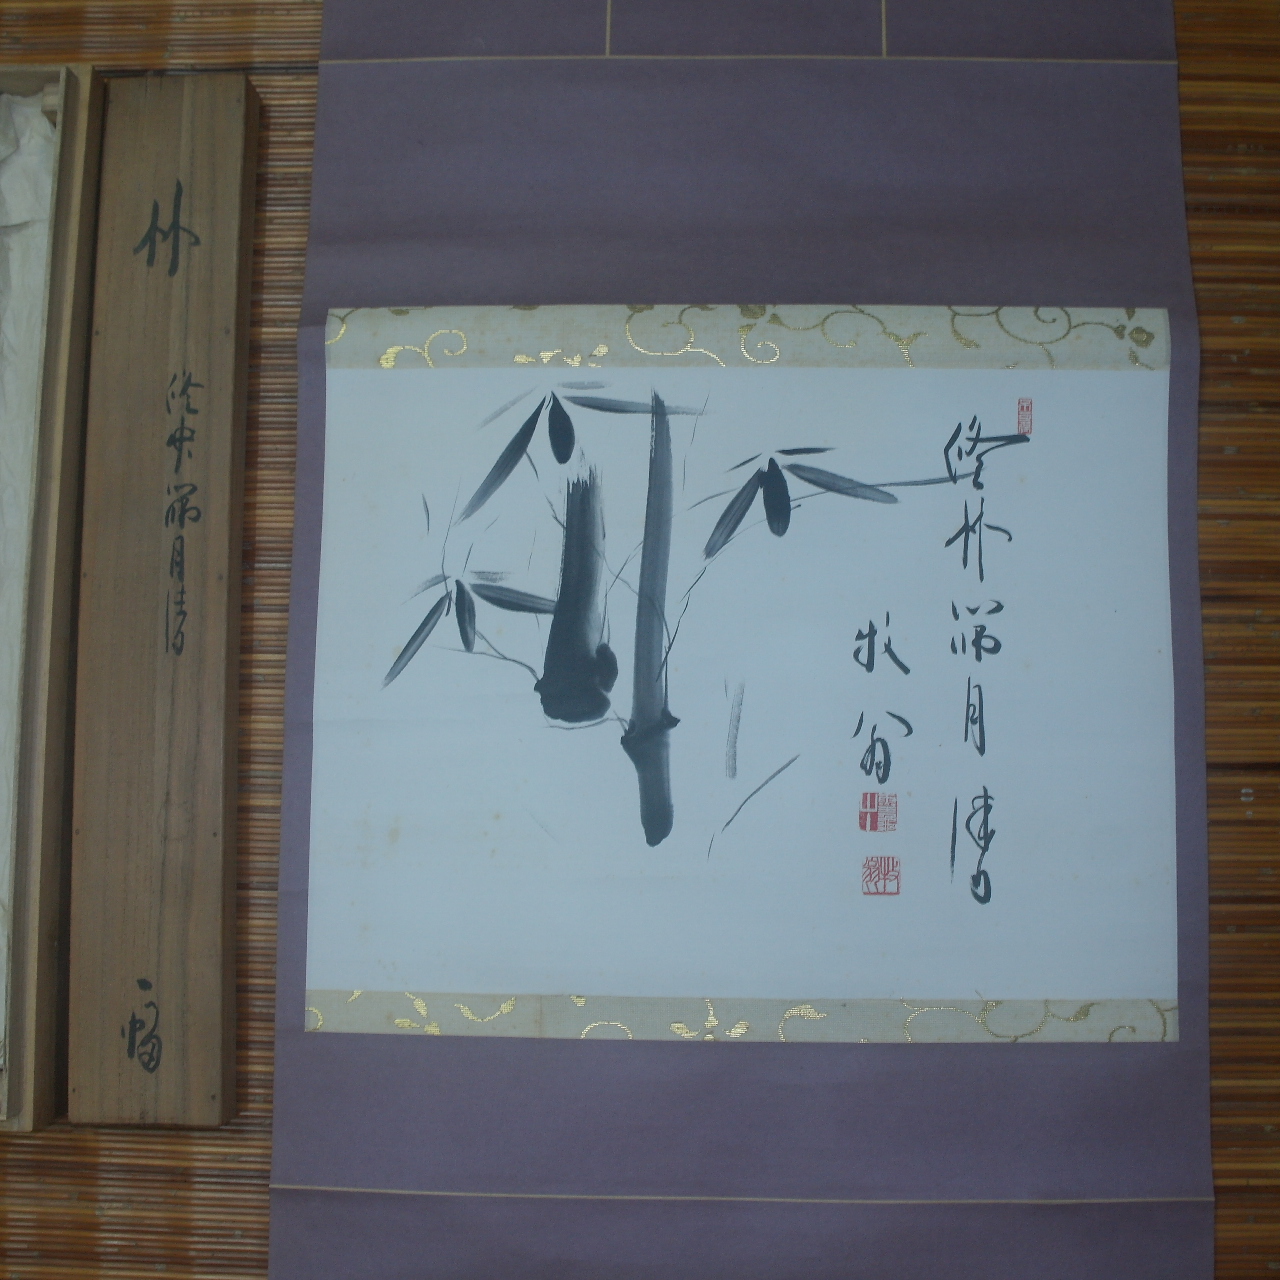 修竹帶月清
牧翁
竹
修竹帶月清
一幅